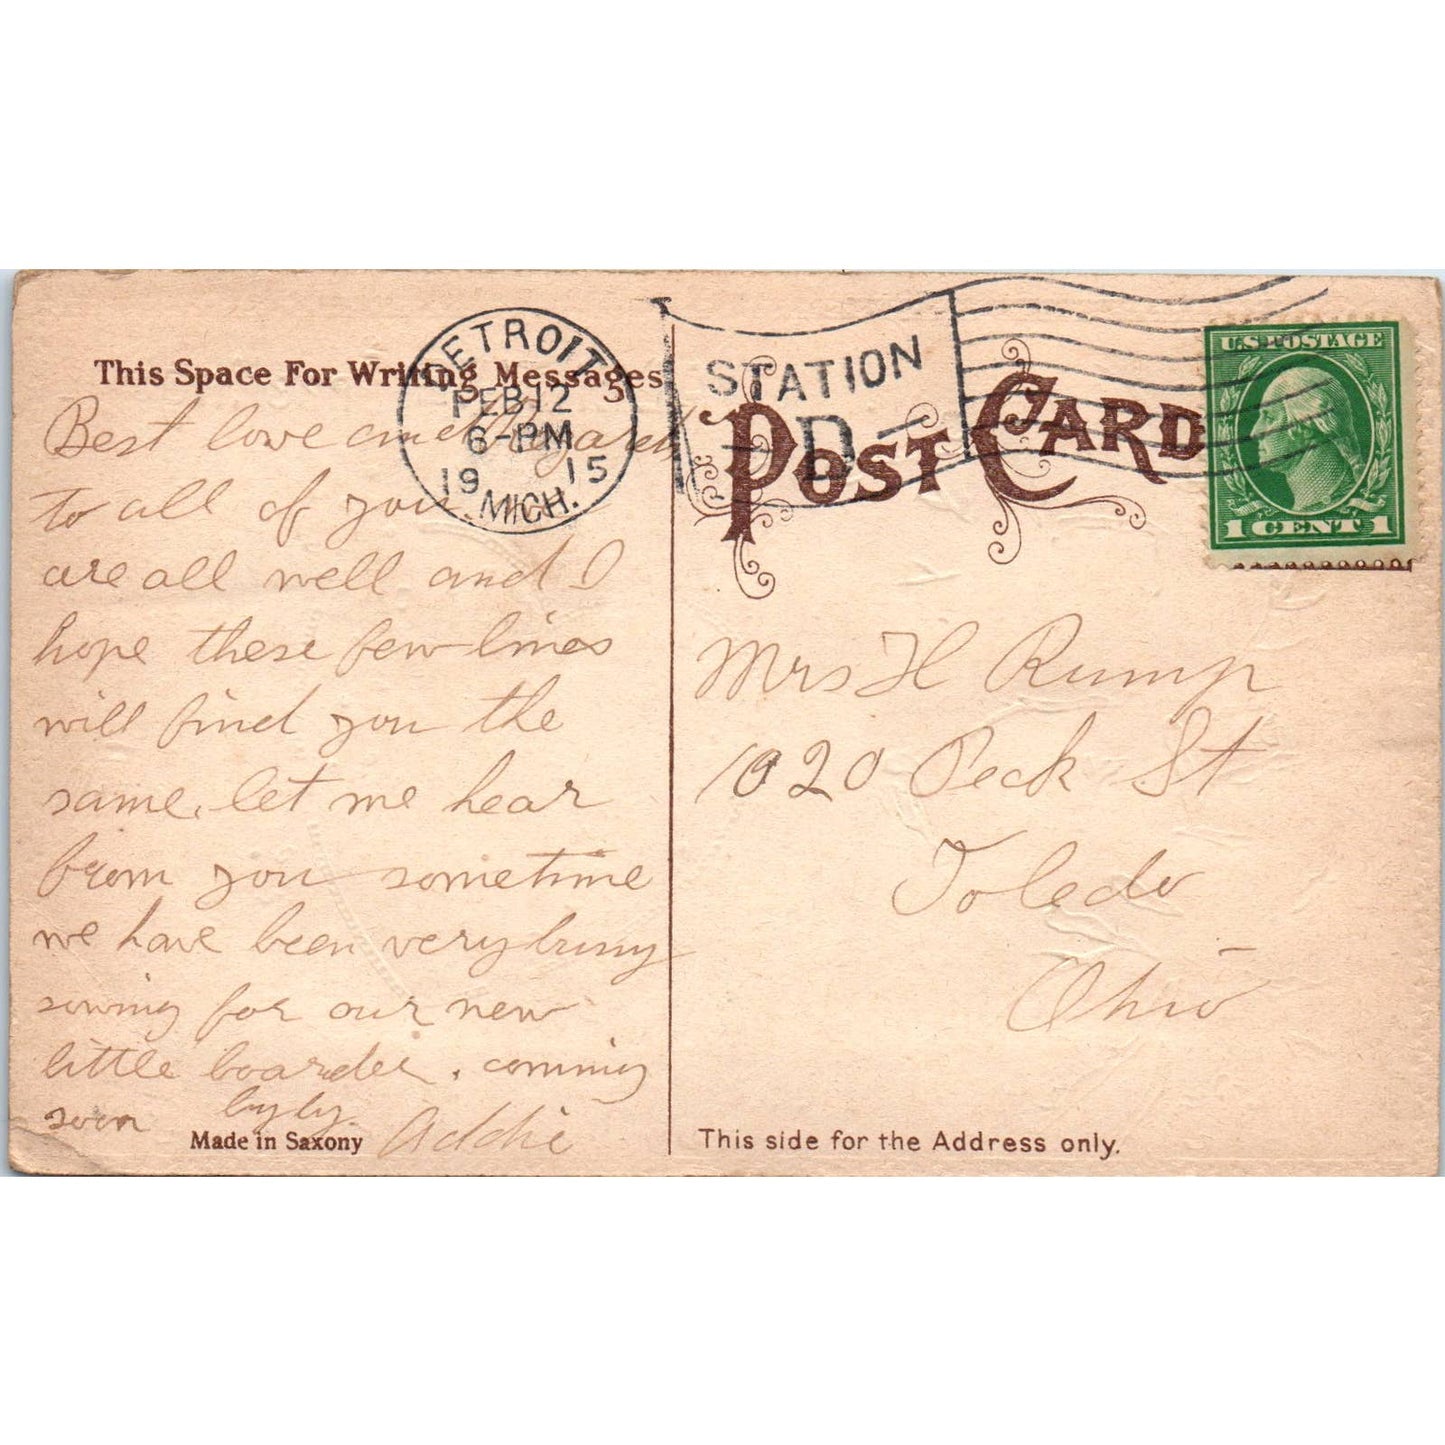 This Space For Writing Messages
DETROIT
FEB 12
6-PM
1915
MICH.
STATION
D
POST CARD
U.S. POSTAGE
1 CENT 1
Best love and Regards
to all of you
are all well and I
hope these few lines
will find you the
same. let me hear
from you sometime
we have been very busy
sewing for our new
little boarder. comming
soon by by.
Addie
Made in Saxony
Mrs H Rump
1020 Peck St
Toledo
Ohio
This side for the Address only.